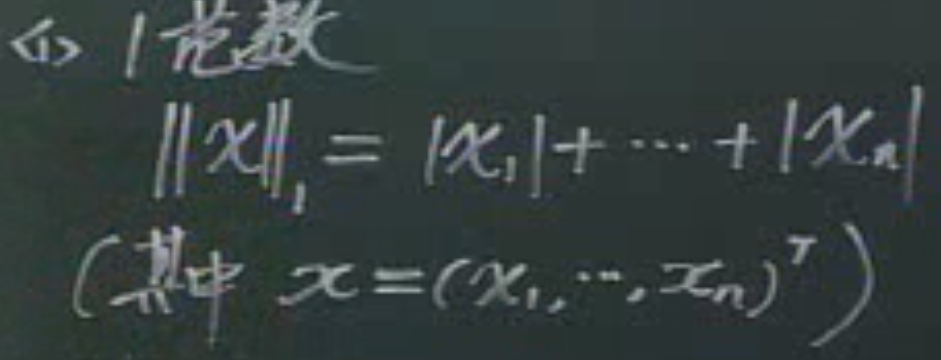 <1> 1范数
‖x‖₁ = |x₁| + ··· + |xₙ|
(其中 x = (x₁, ···, xₙ)ᵀ)